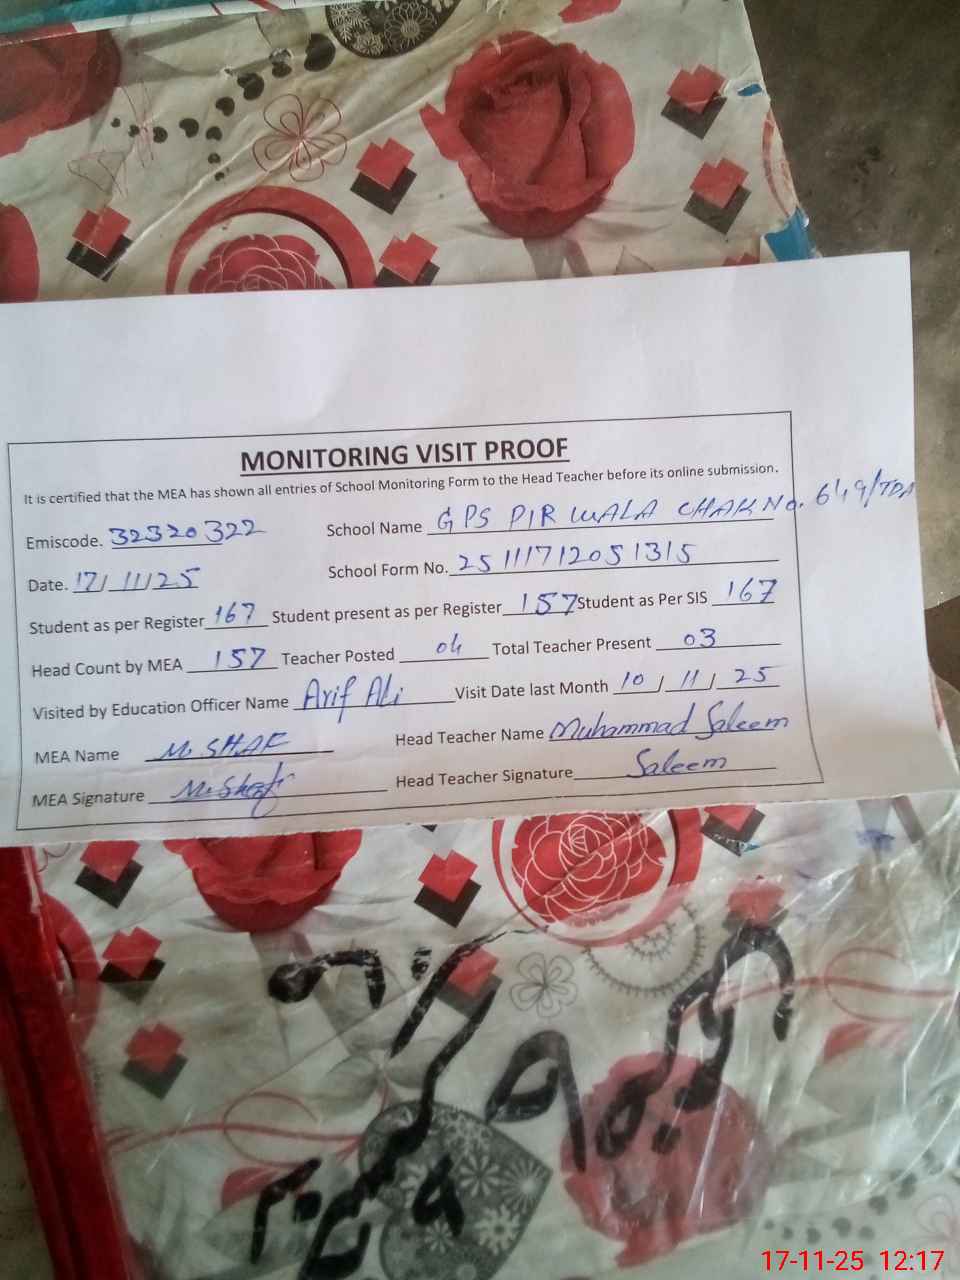 MONITORING VISIT PROOF
It is certified that the MEA has shown all entries of School Monitoring Form to the Head Teacher before its online submission.
Emiscode. 32320322 School Name GPS PIR WALA CHAK No. 649/TDA
Date. 17/11/25 School Form No. 25111712051315
Student as per Register 167 Student present as per Register 157 Student as Per SIS 167
Head Count by MEA 157 Teacher Posted 04 Total Teacher Present 03
Visited by Education Officer Name Arif Ali Visit Date last Month 10/11/25
MEA Name M. SHAF Head Teacher Name Muhammad Saleem
MEA Signature M. Shafi Head Teacher Signature Saleem
17-11-25 12:17